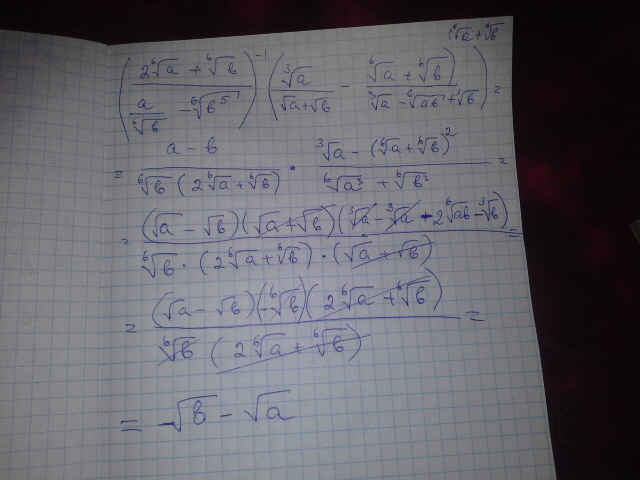 (⁶√a + ⁶√b
((2⁶√a + ⁶√b) / (a/⁶√b − ⁶√b⁵))⁻¹ (³√a / (√a + √b) − (⁶√a + ⁶√b) / (³√a − ⁶√ab + ³√b)) =
= (a − b) / (⁶√b (2⁶√a + ⁶√b)) · (³√a − (⁶√a + ⁶√b)²) / (⁶√a³ + ⁶√b³) =
= (√a − √b)(√a + √b)(³√a − ³√a − 2⁶√ab − ³√b) / (⁶√b · (2⁶√a + ⁶√b) · (√a + √b)) =
= (√a − √b)(−⁶√b)(2⁶√a + ⁶√b) / (⁶√b (2⁶√a + ⁶√b)) =
= √b − √a